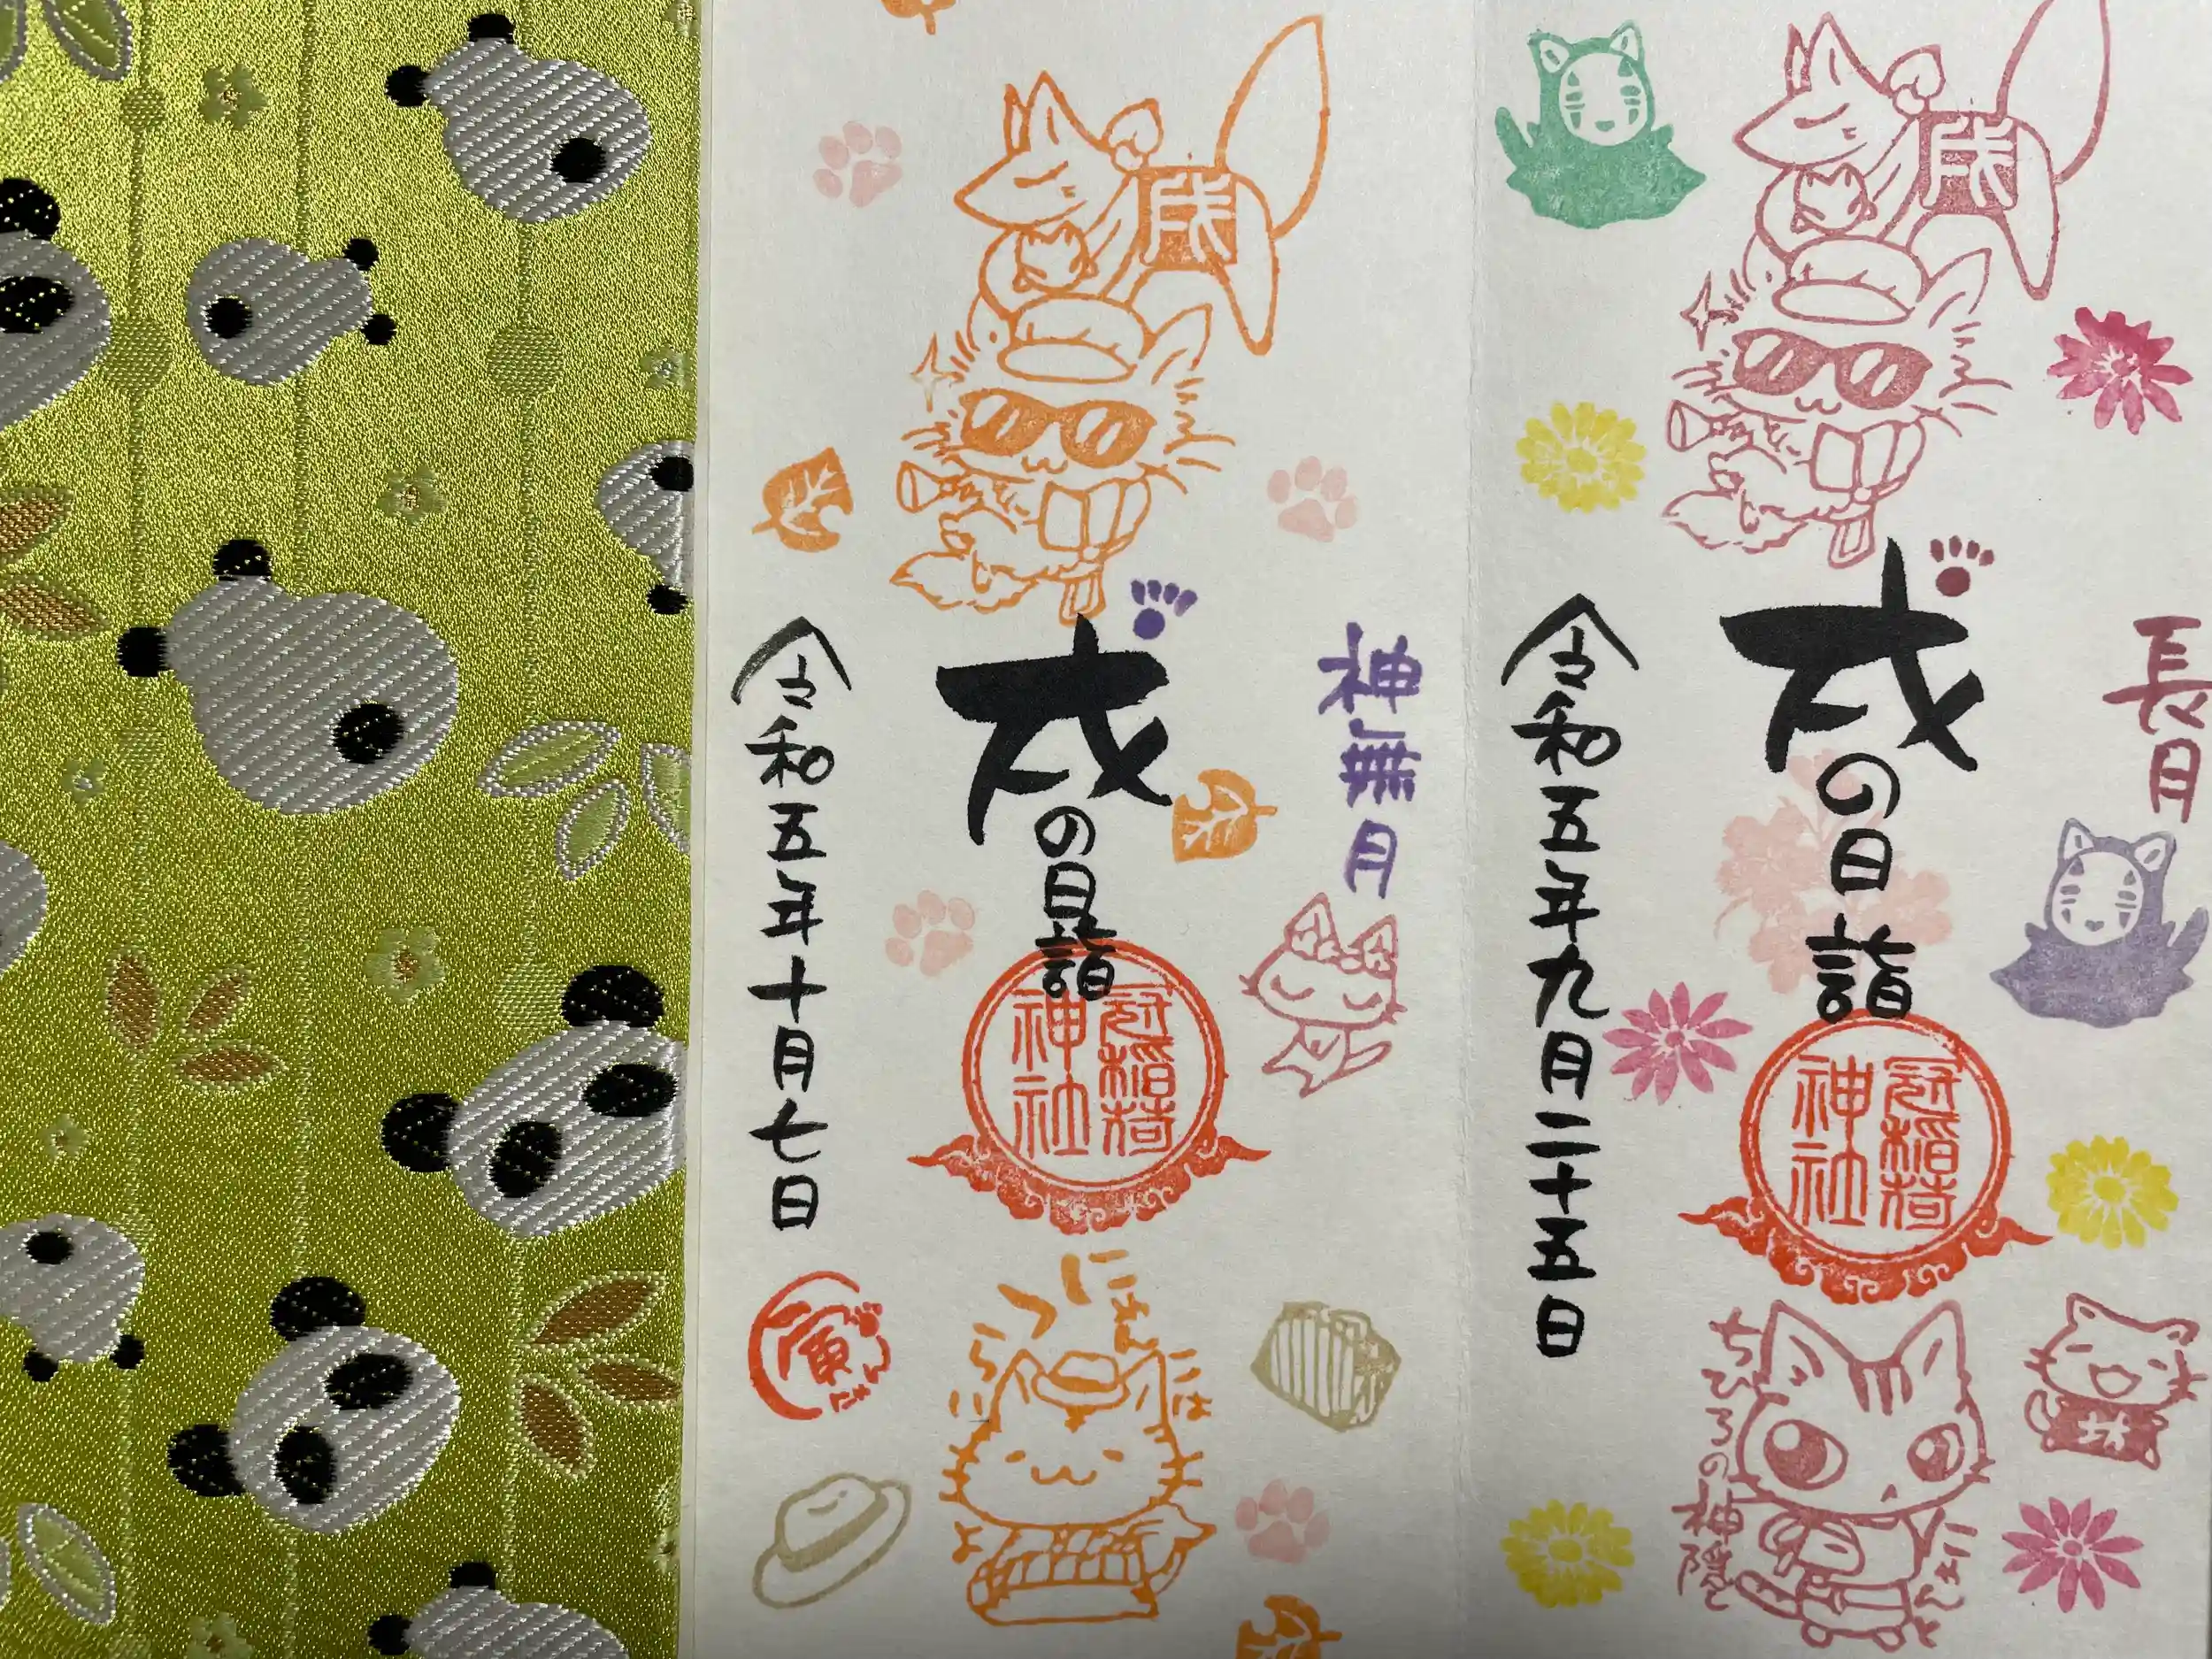 長月
戌
戌の日詣
冠稲荷
神社
にゃんと
ちひろの神隠し
珠
令和五年九月二十五日
神無月
戌
戌の日詣
冠稲荷
神社
にゃん
には
つらいよ
令和五年十月七日
寅にゃん